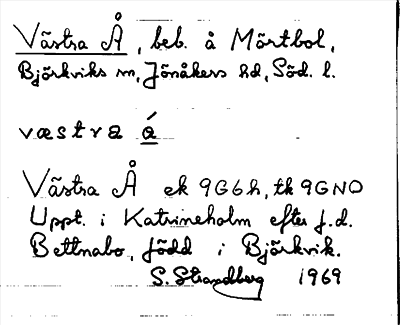 Västra Å, beb. å Mörtbol,
Björkviks sn, Jönåkers hd, Söd. l.
væstra á
Västra Å ek 9G6h, tk 9GNO
Uppt. i Katrineholm efter f.d.
Bettnabo, född i Björkvik.
S. Strandberg 1969